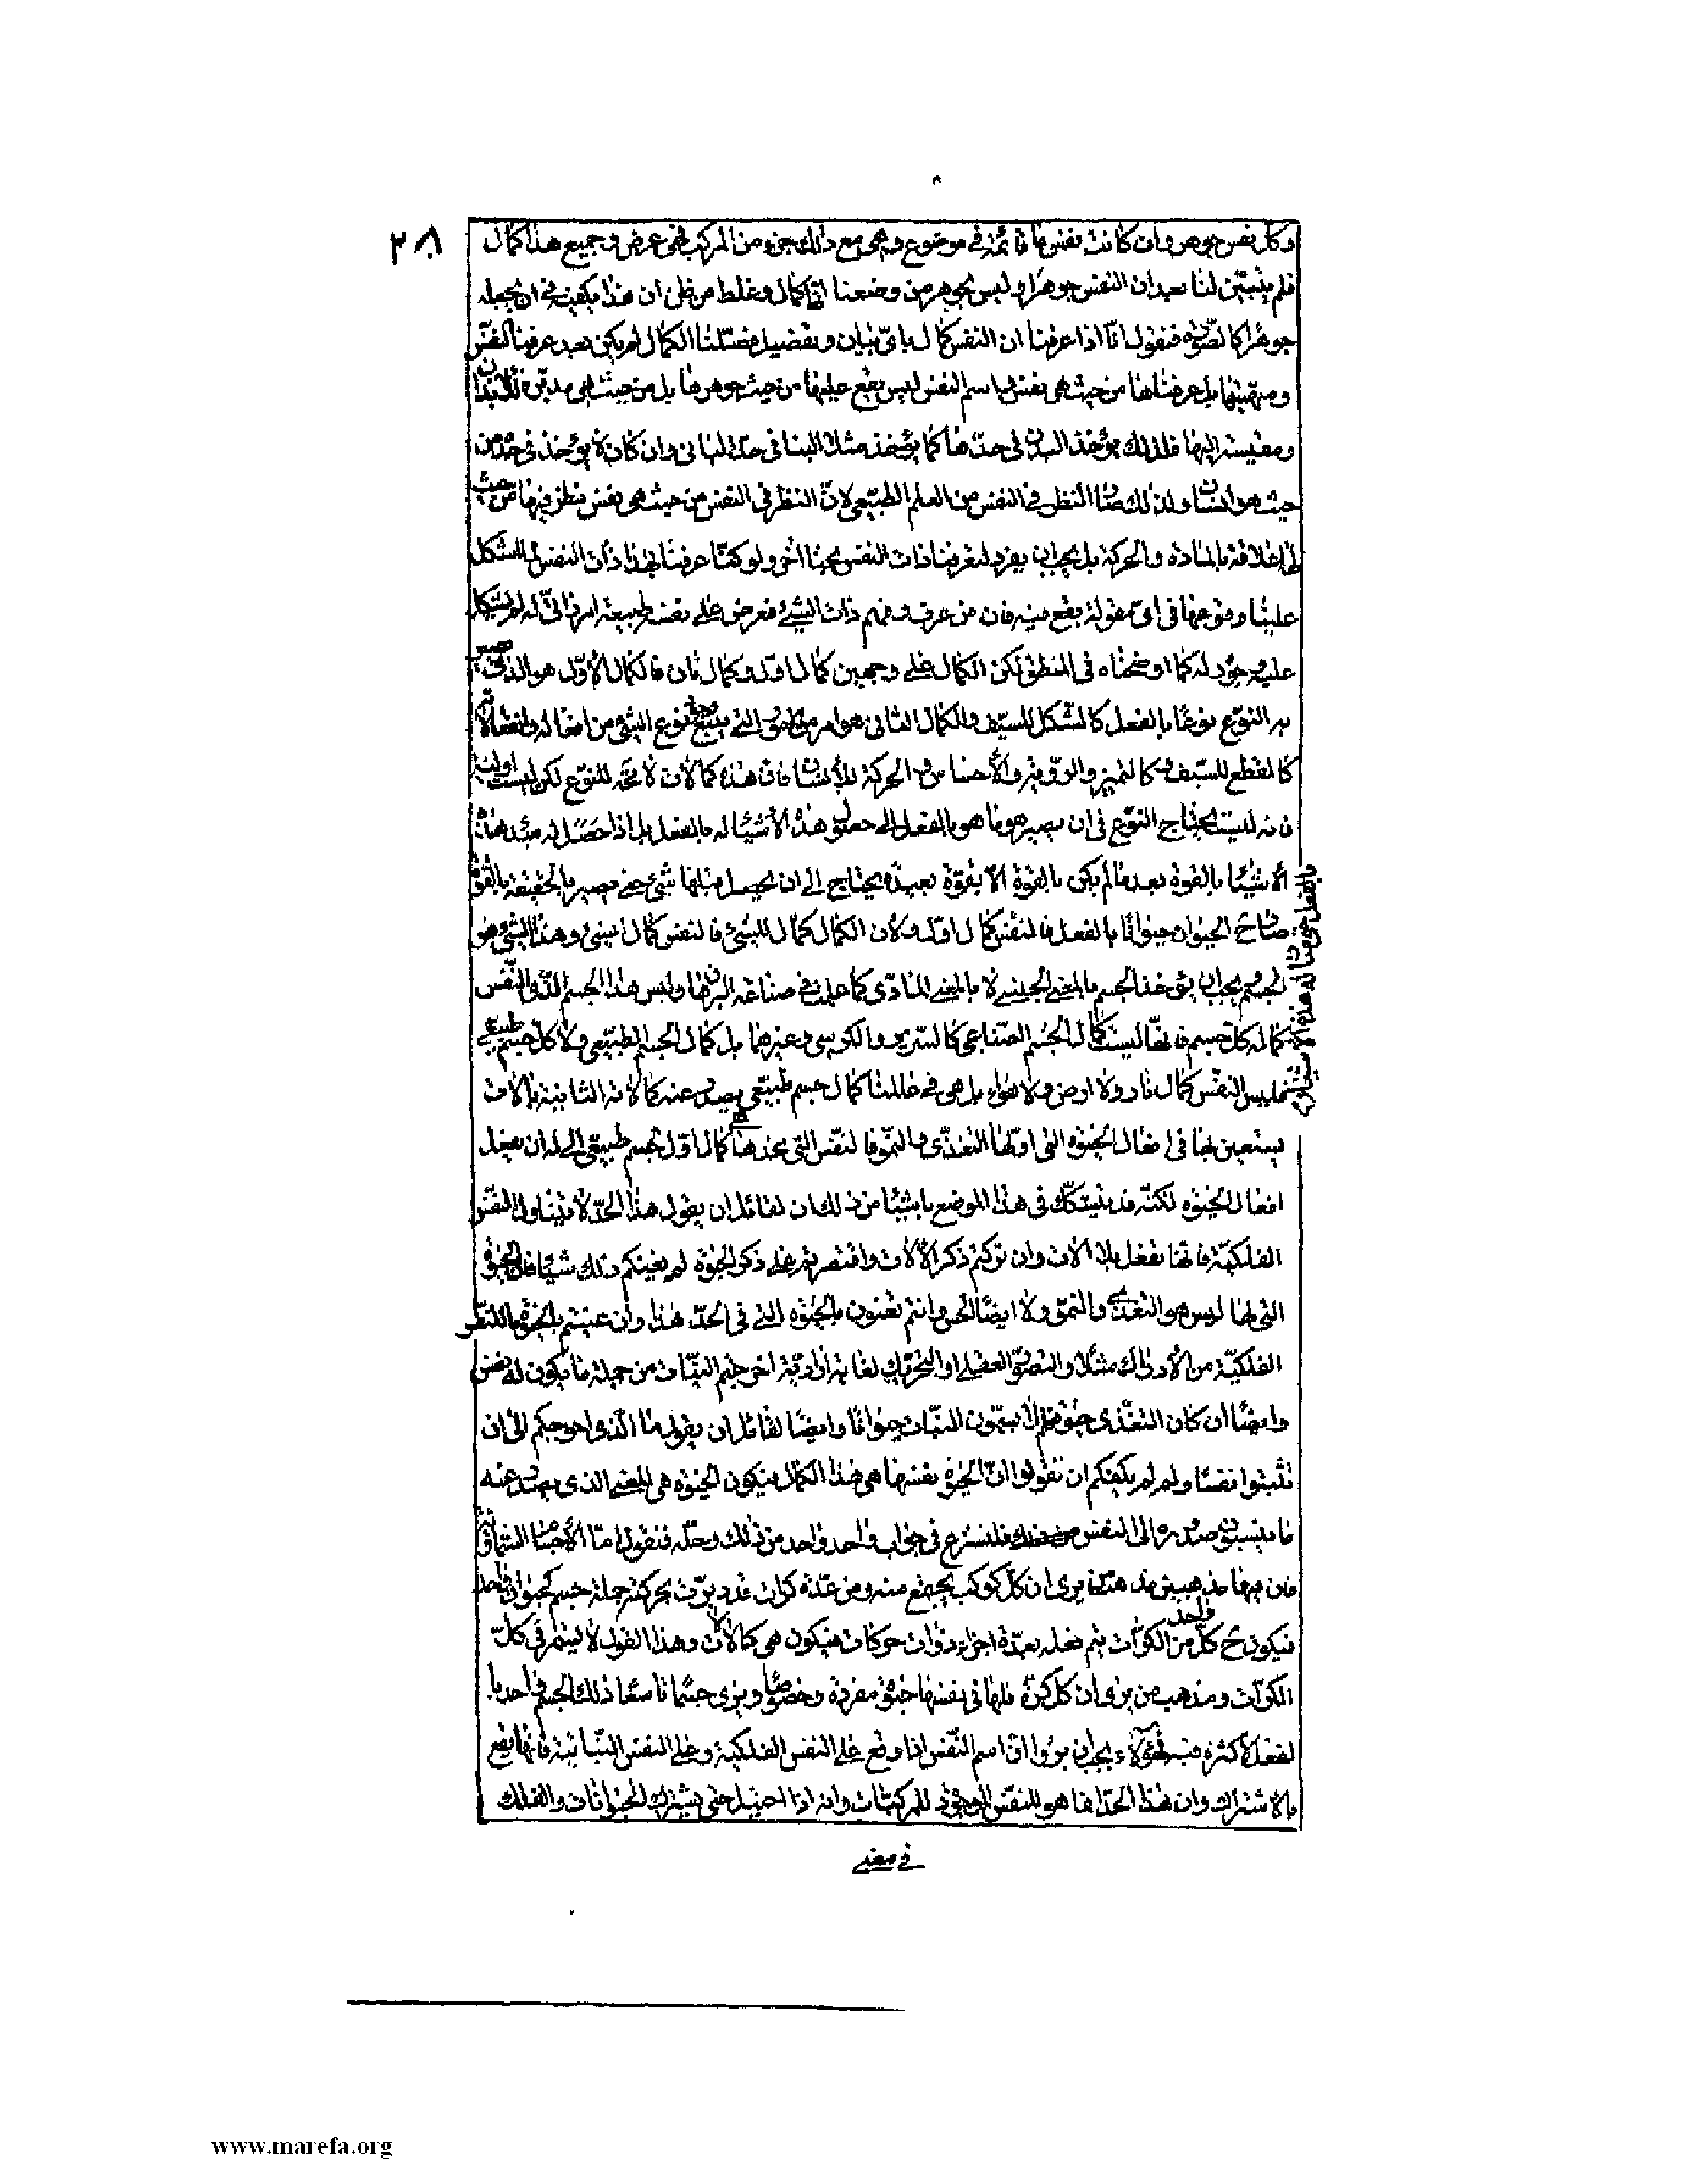 ٢٨٠
وكل نفس جوهر وان كانت بنفسها قائمة في موضوع وهي مع ذلك جزء من المركب فهي عرض وجميع هذا كمال
فلم يتبين لنا بعد ان النفس جوهرا وليس بجوهر من وضعنا انها كمال وغلط من ظن ان هذا يكفيه في ان يجعله
جوهرا كالصورة فنقول انا اذا عرفنا ان النفس كمال باي بيان وتفصيل فصلنا الكمال لم يكن بعد عرفنا النفس
ومهيتها بل عرفناها من حيث هي نفس واسم النفس ليس يقع عليها من حيث جوهرها بل من حيث هي مدبرة للابدان
ومقيسة اليها فلذلك يؤخذ البدن في حدها كما يؤخذ مثلا البنا في حد الباني وان كان لا يؤخذ في حده من
حيث هو انسان ولذلك صار النظر في النفس من العلم الطبيعي لان النظر في النفس من حيث هي نفس نظر فيها من حيث
لها علاقة بالمادة والحركة بل يجب ان يفرد لتعرفنا ذات النفس بحثا اخر ولو كنا عرفنا بهذا ذات النفس لما اشكل
علينا وقوعها في اي مقولة يقع فيه فان من عرف وفهم ذات الشيء فعرض على نفسه طبيعة امر ذاتي له لم يشكل
عليه وجوده له كما اوضحناه في المنطق لكن الكمال على وجهين كمال اول وكمال ثان فالكمال الاول هو الذي يصير
به النوع نوعا بالفعل كالشكل للسيف والكمال الثاني هو امر من الامور التي يتبع وجود نوع الشيء من افعاله وانفعالاته
كالقطع للسيف وكالتميز والروية والاحساس والحركة للانسان فان هذه كمالات لا محة للنوع لكن ليست اولية
فانه ليست يحتاج النوع في ان يصير هو ما هو بالفعل الى حصول هذه الاشيا له بالفعل بل اذا حصل له مبدء هذه
الاشيا بالقوة بعد ما لم يكن بالقوة الا بقوة بعيدة يحتاج الى ان يحصل قبلها شيء حتى يصير بالحقيقة بالقوة
صار ح الحيوان حيوانا بالفعل فالنفس كمال اول ولان الكمال كمال للشيء فالنفس كمال لشيء وهذا الشيء هو
الجسم ويجب ان يؤخذ الجسم بالمعنى الجنسي لا بالمعنى المادي كما علمت في صناعة البرهان وليس هذا الجسم الذي النفس
كماله كل جسم فانها ليست كمال الجسم الصناعي كالسرير والكرسي وغيرهما بل كمال الجسم الطبيعي ولا كل جسم طبيعي
فليس النفس كمال نار ولا ارض ولا هواء بل هي في عالمنا كمال جسم طبيعي يصدر عنه كمالاته الثانية بالات
يستعين بها في افعال الحيوة التي اولها التغذي والنمو فالنفس التي نحدها كمال اول لجسم طبيعي الي له ان يفعل
افعال الحيوة لكنه قد يتشكك في هذا الموضع باشيا من ذلك ان لقائل ان يقول هذا الحد لا يتناول النفس
الفلكية فانها تفعل بلا الات وان تركتم ذكر الالات واقتصرتم على ذكر الحيوة لم يغنكم ذلك شيئا فان الحيوة
التي لها ليس هو التغذي والنمو ولا ايضا الحس وانتم تعنون بالحيوة التي في الحد هذا وان عنيتم بالحيوة ما للنفس
الفلكية من الادراك مثلا والتصور العقلي او التحريك لغاية ارادية اخرجتم النبات من جملة ما يكون له نفس
وايضا ان كان التغذي حيوة فلم لا تسمون النبات حيوانا وايضا لقائل ان يقول ما الذي احوجكم الى ان
تثبتوا نفسا ولم لم يكفكم ان تقولوا ان الحيوة نفسها هي هذا الكمال فيكون الحيوة هي المعنى الذي يصدر عنه
ما ينسبون صدوره الى النفس فلنشرع في جواب واحد واحد من ذلك وحله فنقول اما الاجسام السماوية
فان فيها مذهبين مذهب من يرى ان كل كوكب يجتمع منه ومن عدة كرات قد دبرت بحركته جملة جسم كحيوان واحد
فيكون ح كل واحد من الكرات يتم فعله بعدة اجزاء ذوات حركات فيكون هي كالالات وهذا القول لا يستمر في كل
الكرات ومذهب من يرى ان كل كرة فلها في نفسها حيوة مفردة وخصوصا ويرى جسما تاسعا ذلك الجسم واحد با
لفعل لا كثرة فيه فهؤلاء يجب ان يروا ان اسم النفس اذا وقع على النفس الفلكية وعلى النفس النباتية فانما يقع
بالاشتراك وان هذا الحد انما هو للنفس الموجود للمركبات وانه اذا احتيل حتى يشترك الحيوانات والفلك
في معنى
www.marefa.org